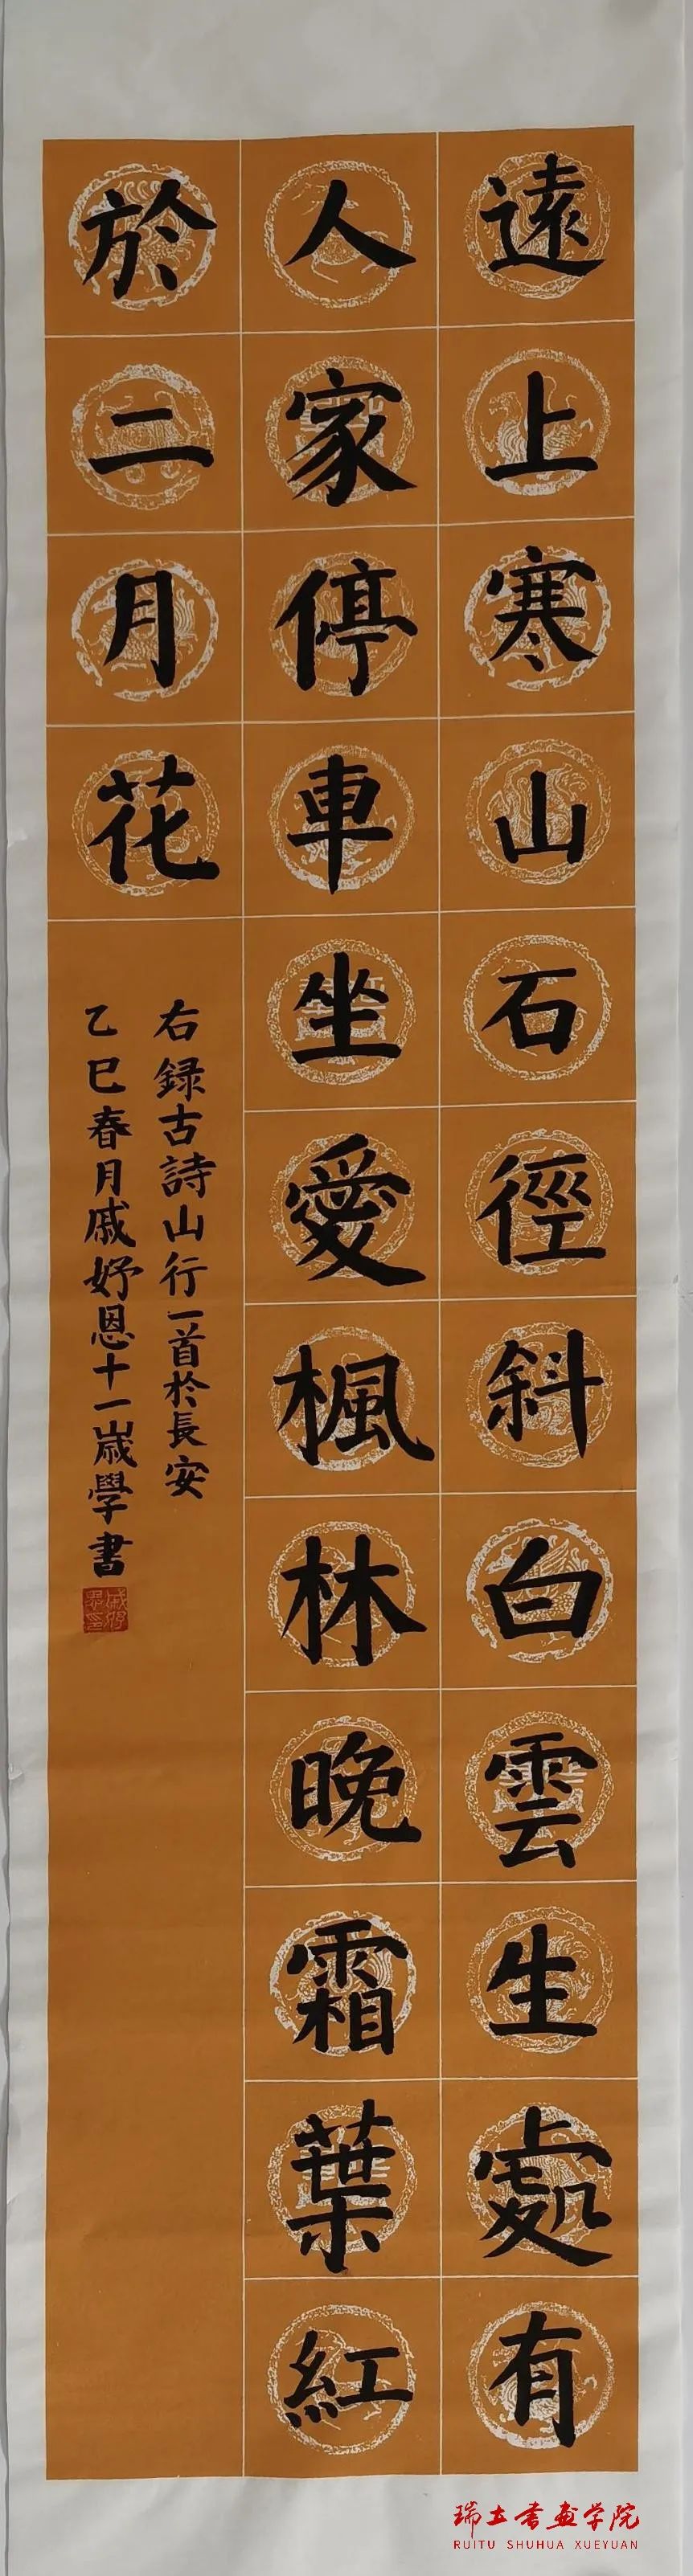 遠上寒山石徑斜白雲生處有
人家停車坐愛楓林晚霜葉紅
於二月花
右録古詩山行一首於長安
乙巳春月戚妤恩十一歲學書
瑞土書画学院
RUITU SHUHUA XUEYUAN